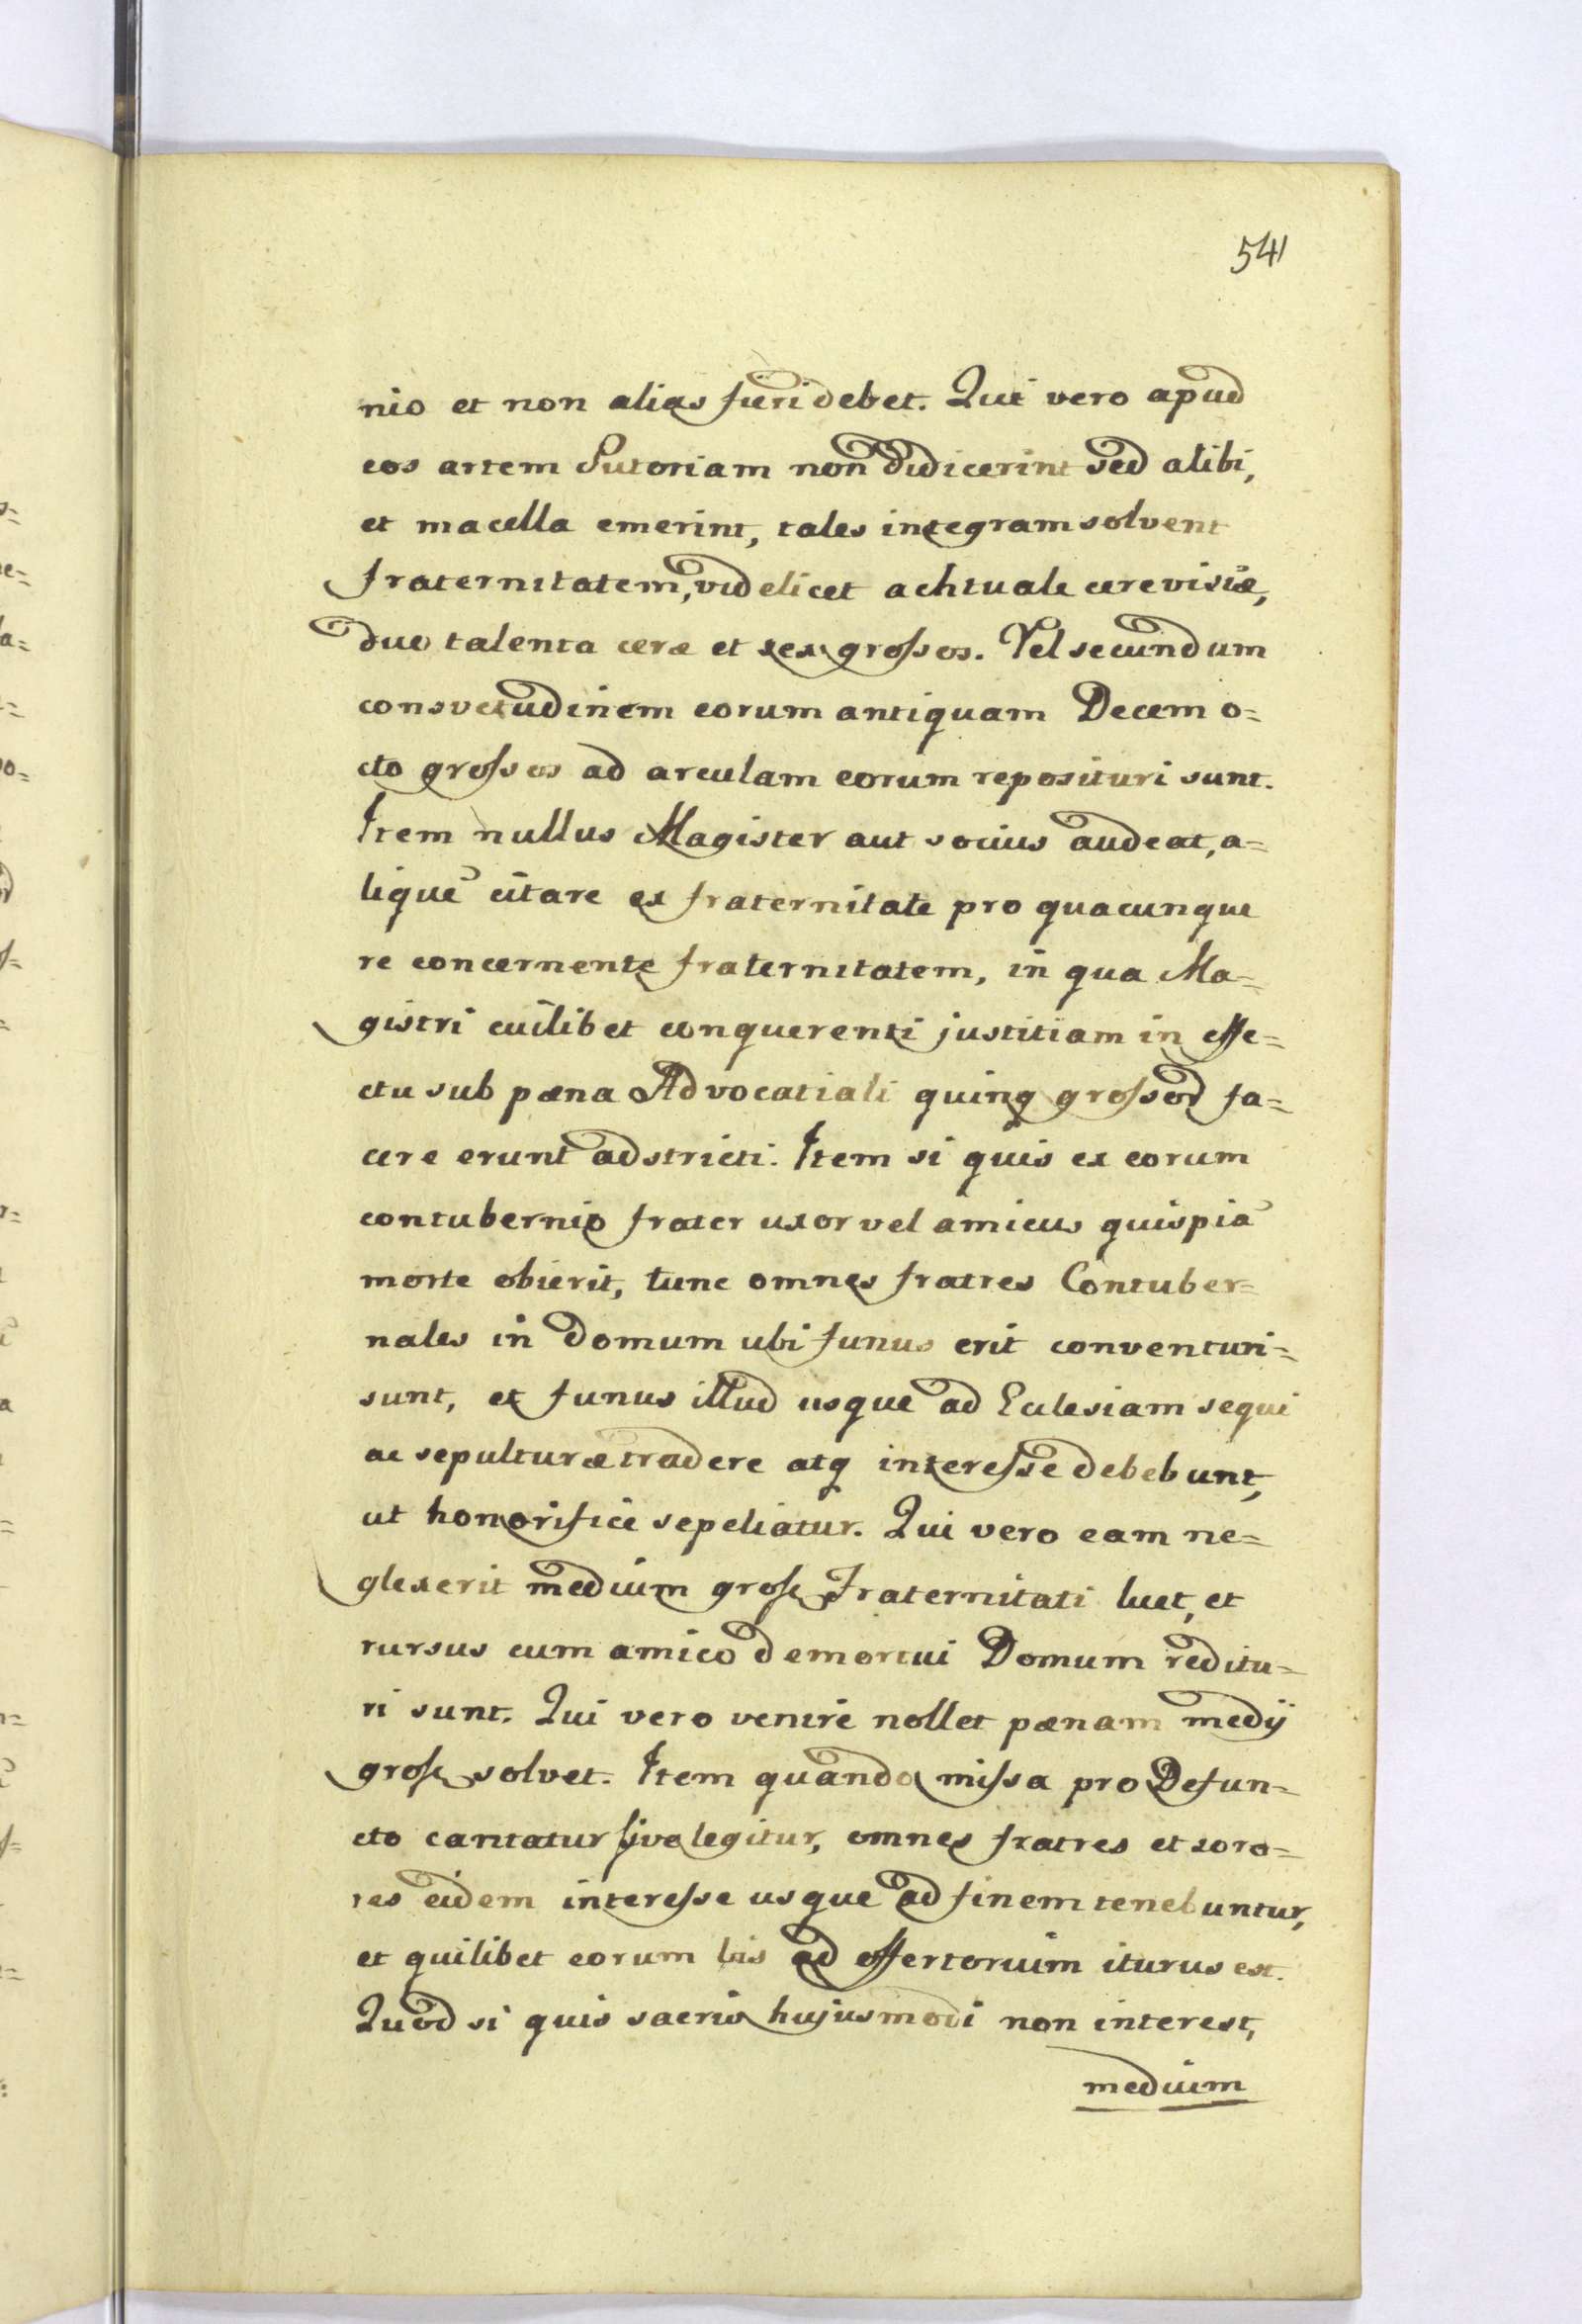 541
nio et non alias fieri debet. Qui vero apud
eos artem Sutoriam non didicerint sed alibi,
et macella emerint, tales integram solvent
fraternitatem, videlicet achtuale cerevisiæ,
duo talenta ceræ et sex grossos. Vel secundum
consvetudinem eorum antiquam Decem o=
cto grossos ad arculam eorum reposituri sunt.
Item nullus Magister aut socius audeat, a=
liquē citare ex fraternitate pro quacunque
re concernente fraternitatem, in qua Ma=
gistri cuilibet conquerenti justitiam in effe=
ctu sub pæna Advocatiali quinq grossor̄ fa=
cere erunt adstricti. Item si quis ex eorum
contubernio frater uxor vel amicus quispiā
morte obierit, tunc omnes fratres Contuber=
nales in domum ubi funus erit conventuri=
sunt, et funus illud usque ad Eclesiam sequi
ac sepulturæ tradere atq interesse debebunt,
ut honorifice sepeliatur. Qui vero eam ne=
glexerit medium gross Fraternitati luet, et
rursus cum amico demortui Domum reditu=
ri sunt. Qui vero venire nollet pænam medij
gross solvet. Item quando missa pro Defun=
cto cantatur sive legitur, omnes fratres et soro=
res eidem interesse usque ad finem tenebuntur,
et quilibet eorum bis ad offertorium iturus est.
Quod si quis sacris hujusmodi non interest,
medium